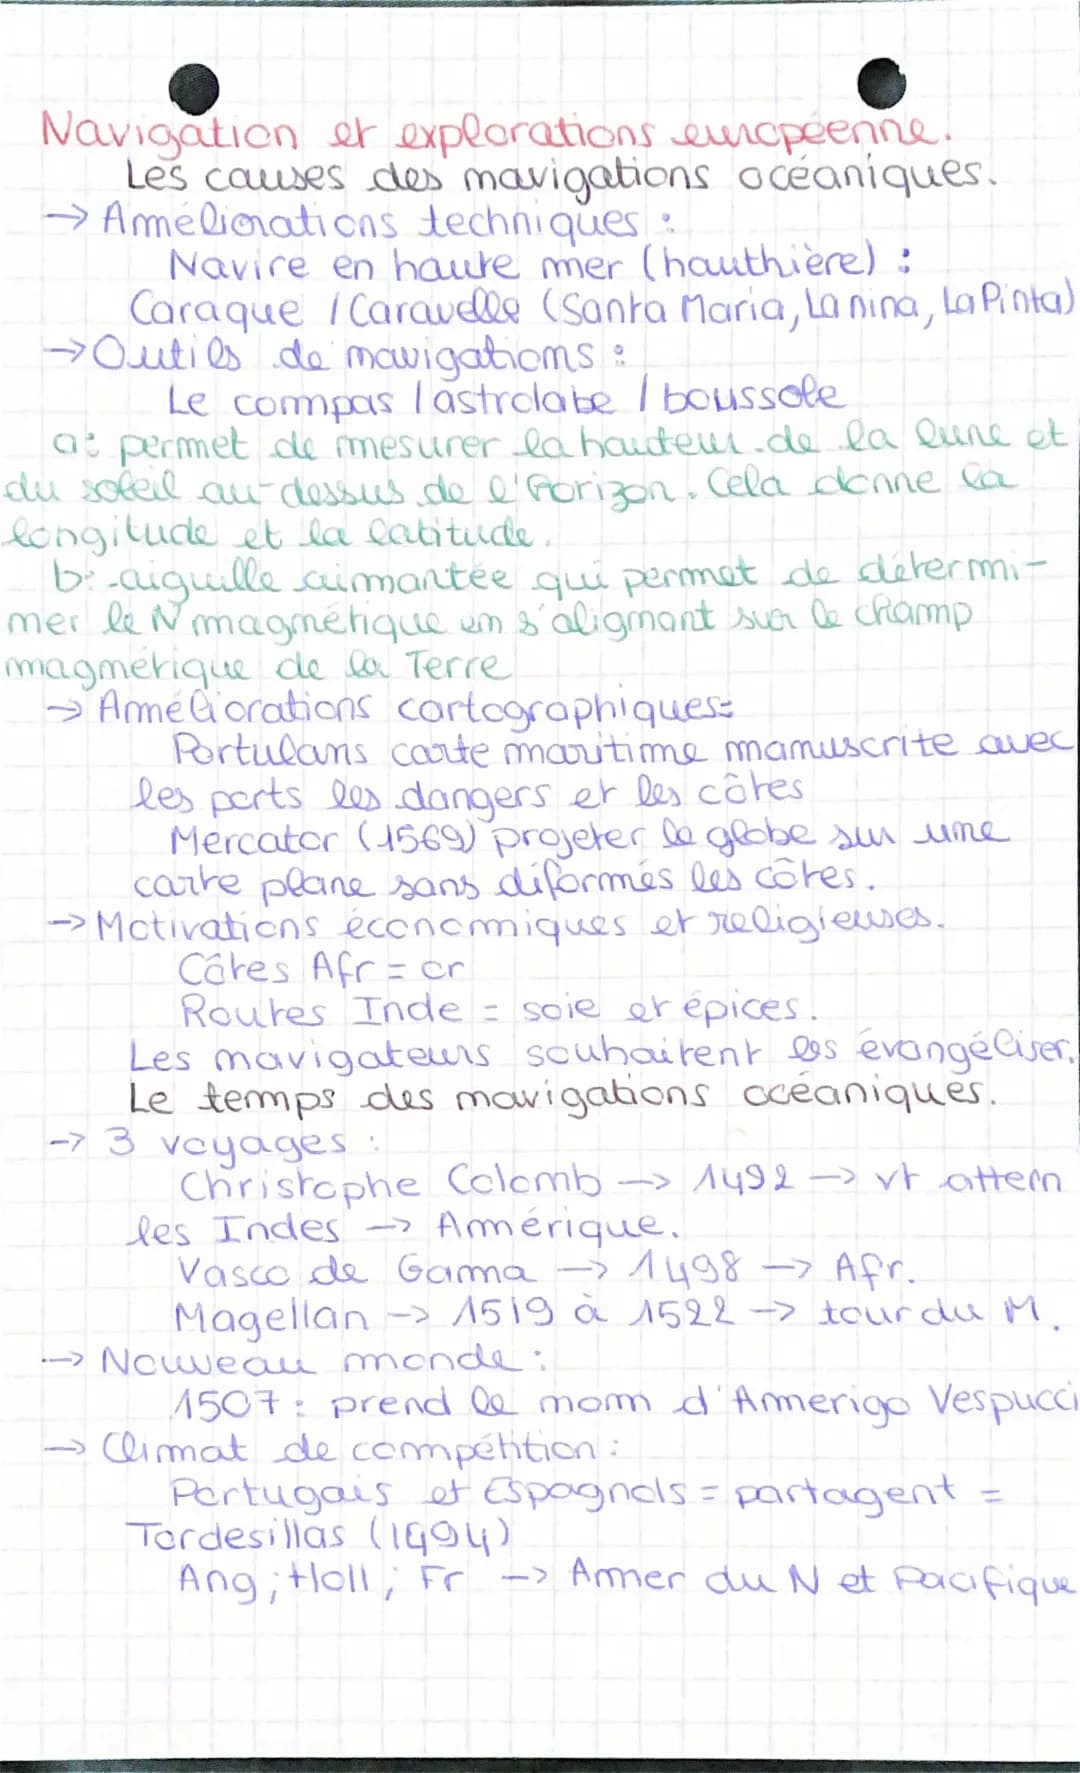 Navigation et explorations européenne.
Les causes des navigations océaniques.
→ Améliorations techniques :
Navire en haute mer (hauthière) :
Caraque / Caravelle (Santa Maria, La nina, La Pinta)
→ Outils de navigations :
Le compas / astrolabe / boussole
a: permet de mesurer la hauteur de la lune et
du soleil au-dessus de l'horizon. Cela donne la
longitude et la latitude.
b: aiguille aimantée qui permet de détermi-
ner le N magnétique en s'alignant sur le champ
magnétique de la Terre
→ Améliorations cartographiques:
Portulans carte maritime manuscrite avec
les ports les dangers et les côtes
Mercator (1569) projeter le globe sur une
carte plane sans diformés les côtes.
→ Motivations économiques et religieuses.
Côtes Afr = or
Routes Inde = soie et épices.
Les navigateurs souhaitent les évangéliser.
Le temps des navigations océaniques.
→ 3 voyages :
Christophe Colomb → 1492 → vt attein
les Indes → Amérique.
Vasco de Gama → 1498 → Afr.
Magellan → 1519 à 1522 → tour du M.
→ Nouveau monde :
1507 : prend le nom d'Amerigo Vespucci
→ Climat de compétition :
Portugais et Espagnols = partagent =
Tordesillas (1494)
Ang ; Holl ; Fr → Amer du N et Pacifique